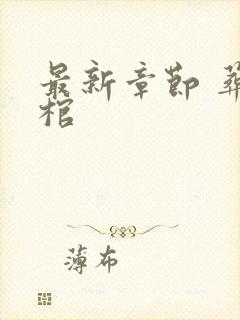 最新章节 葬
棺
薄布